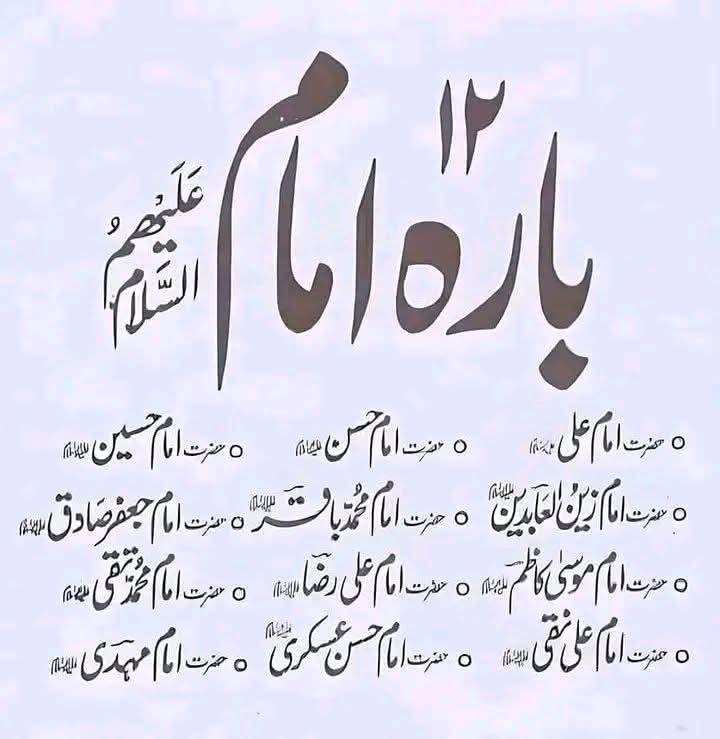 ۱۲
بارہ امام
عَلَيْهِمُ
السَّلَام
حضرت امام علی علیہ السلام حضرت امام حسن علیہ السلام حضرت امام حسین علیہ السلام
حضرت امام زین العابدین علیہ السلام حضرت امام محمد باقر علیہ السلام حضرت امام جعفر صادق علیہ السلام
حضرت امام موسیٰ کاظم علیہ السلام حضرت امام علی رضا علیہ السلام حضرت امام محمد تقی علیہ السلام
حضرت امام علی نقی علیہ السلام حضرت امام حسن عسکری علیہ السلام حضرت امام مہدی علیہ السلام